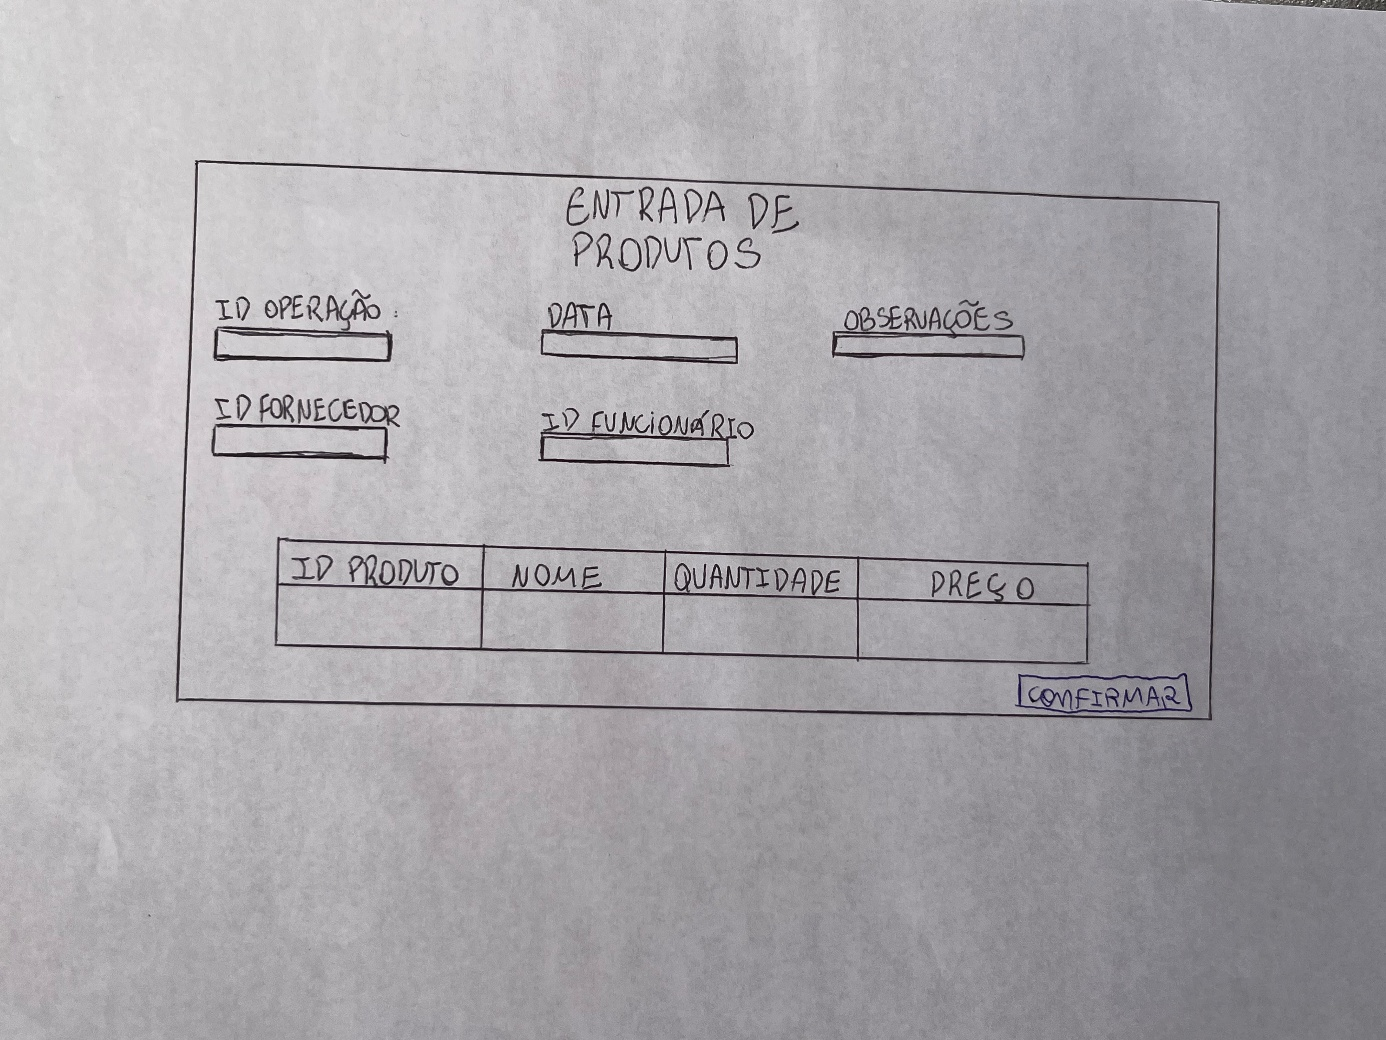 ENTRADA DE
PRODUTOS
ID OPERAÇÃO:
DATA
OBSERVAÇÕES
ID FORNECEDOR
ID FUNCIONÁRIO
ID PRODUTO NOME QUANTIDADE PREÇO
CONFIRMAR